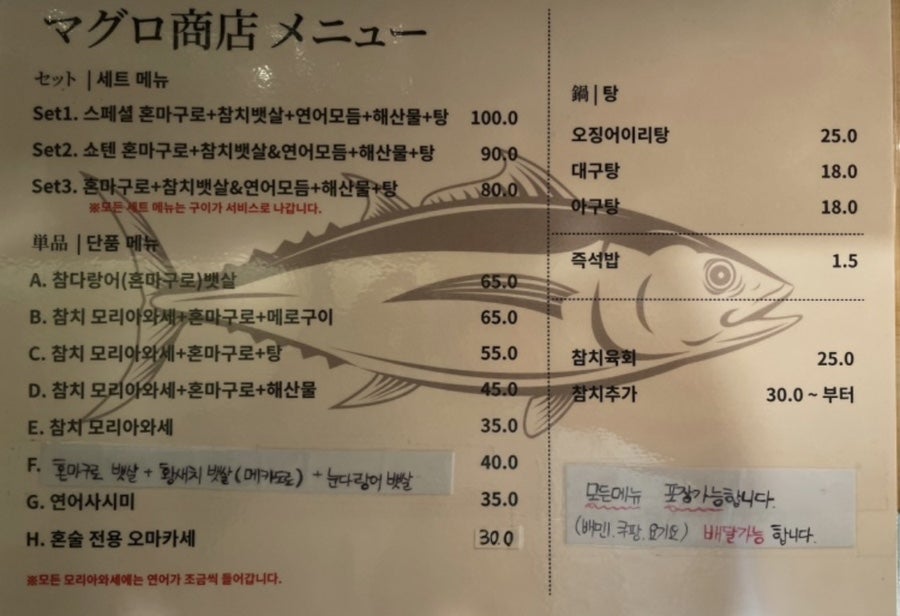 マグロ商店 メニュー
セット | 세트 메뉴
Set1. 스페셜 혼마구로+참치뱃살+연어모듬+해산물+탕 100.0
Set2. 쇼텐 혼마구로+참치뱃살&연어모듬+해산물+탕 90.0
Set3. 혼마구로+참치뱃살&연어모듬+해산물+탕 80.0
※모든 세트 메뉴는 구이가 서비스로 나갑니다.
単品 | 단품 메뉴
A. 참다랑어(혼마구로)뱃살 65.0
B. 참치 모리아와세+혼마구로+메로구이 65.0
C. 참치 모리아와세+혼마구로+탕 55.0
D. 참치 모리아와세+혼마구로+해산물 45.0
E. 참치 모리아와세 35.0
F. 혼마구로 뱃살 + 황새치 뱃살(메카도로) + 눈다랑어 뱃살 40.0
G. 연어사시미 35.0
H. 혼술 전용 오마카세 30.0
※모든 모리아와세에는 연어가 조금씩 들어갑니다.
鍋 | 탕
오징어이리탕 25.0
대구탕 18.0
아구탕 18.0
즉석밥 1.5
참치육회 25.0
참치추가 30.0 ~ 부터
모든메뉴 포장가능합니다.
(배민.쿠팡.요기요) 배달가능 합니다.